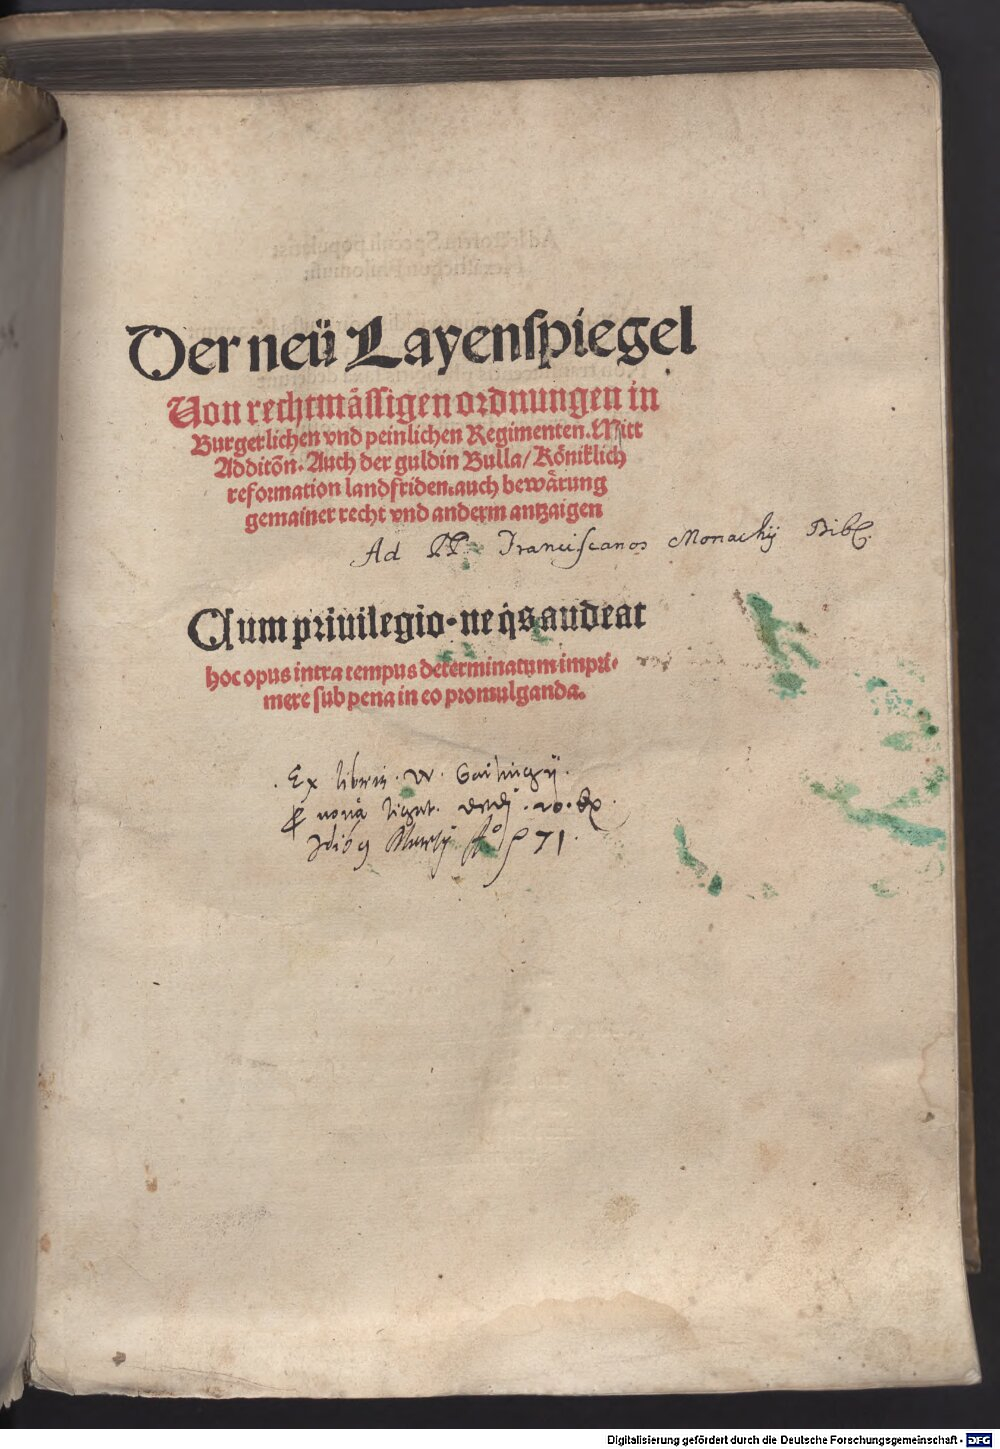 Der neü Layenſpiegel
Von rechtmäſſigen ordnungen in
Burgerlichen vnd peinlichen Regimenten. Mitt
Additōn. Auch der guldin Bulla/ Königklich
reformation landfriden. auch bewärung
gemainer recht vnd anderm antzaigen
Ad PP. Franciscanos Monachij Bibl.
Cum priuilegio. ne q̇s audeat
hoc opus intra tempus determinatum impri-
mere ſub pena in eo promulganda.
Ex libris
71
Digitalisierung gefördert durch die Deutsche Forschungsgemeinschaft - DFG